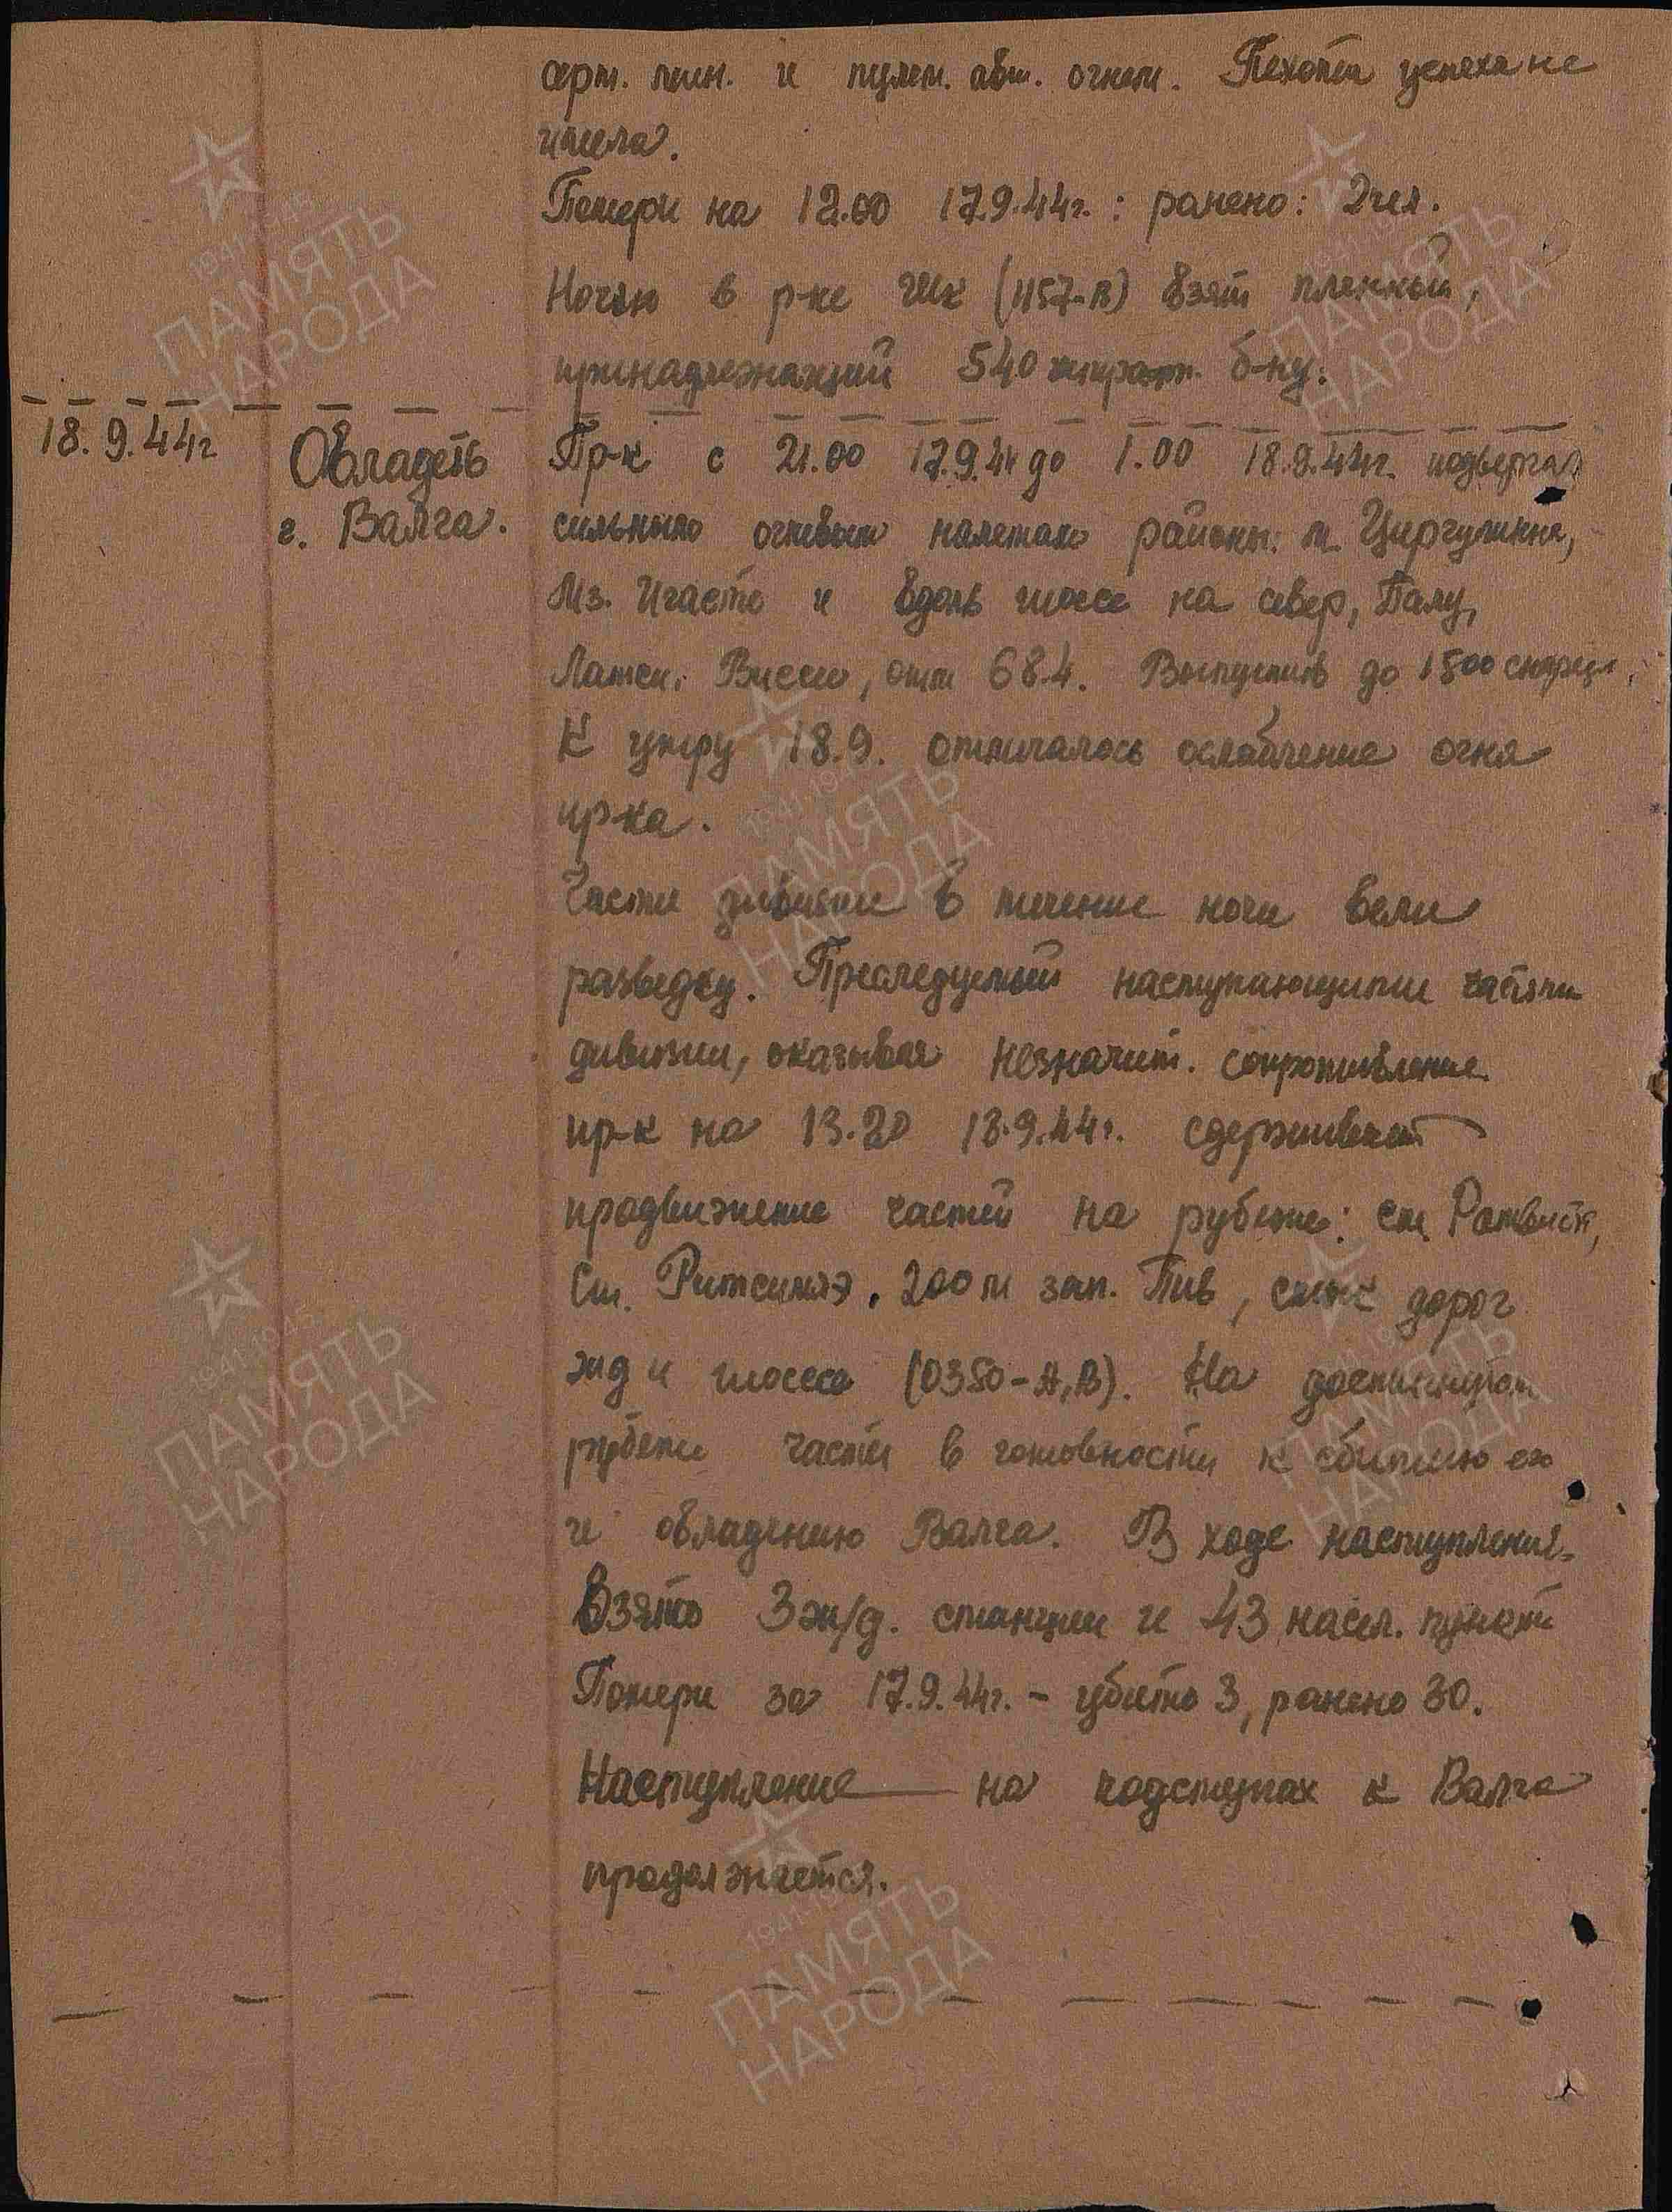 арт. мин. и пулем. авт. огнем. Пехота успеха не
имела.
Потери на 12.00 17.9.44г.: ранено: 2 чел.
Ночью в р-не (1157-В) взят пленный,
принадлежащий 540 штраф. б-ну.
18.9.44г
Овладеть
г. Валга.
Пр-к с 21.00 17.9.44 до 1.00 18.9.44г. подвергал
сильным огневым налетам районы: м. Циргулина,
Мз. Игасте и вдоль шоссе на север, Палу,
отм 68.4. Выпустив до 1500 снаряд.
К утру 18.9. отмечалось ослабление огня
пр-ка.
Части дивизии в течение ночи вели
разведку. Преследуемый наступающими частями
дивизии, оказывая незначит. сопротивление
пр-к на 13.20 18.9.44г. сдерживает
продвижение частей на рубеже: ст.
Ст. Ритсиляэ, 200 м зап. Пив, стык дорог
жд и шоссе (0350-А,В). На достигнутом
рубеже части в готовности к сбитию его
и овладению Валга. В ходе наступления
взято 3 ж/д. станции и 43 насел. пункта
Потери за 17.9.44г. - убито 3, ранено 30.
Наступление на подступах к Валга
продолжается.
1941-1945
ПАМЯТЬ
НАРОДА
1941-1945
ПАМЯТЬ
НАРОДА
1941-1945
ПАМЯТЬ
НАРОДА
1941-1945
ПАМЯТЬ
НАРОДА
1941-1945
ПАМЯТЬ
НАРОДА
1941-1945
ПАМЯТЬ
НАРОДА